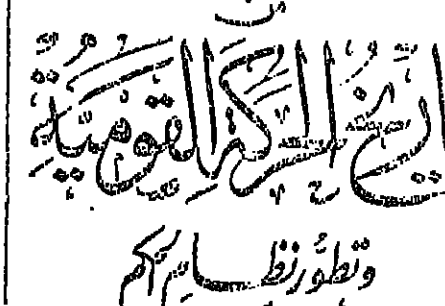 تاريخ الحركة القومية
وتطور نظام الحكم